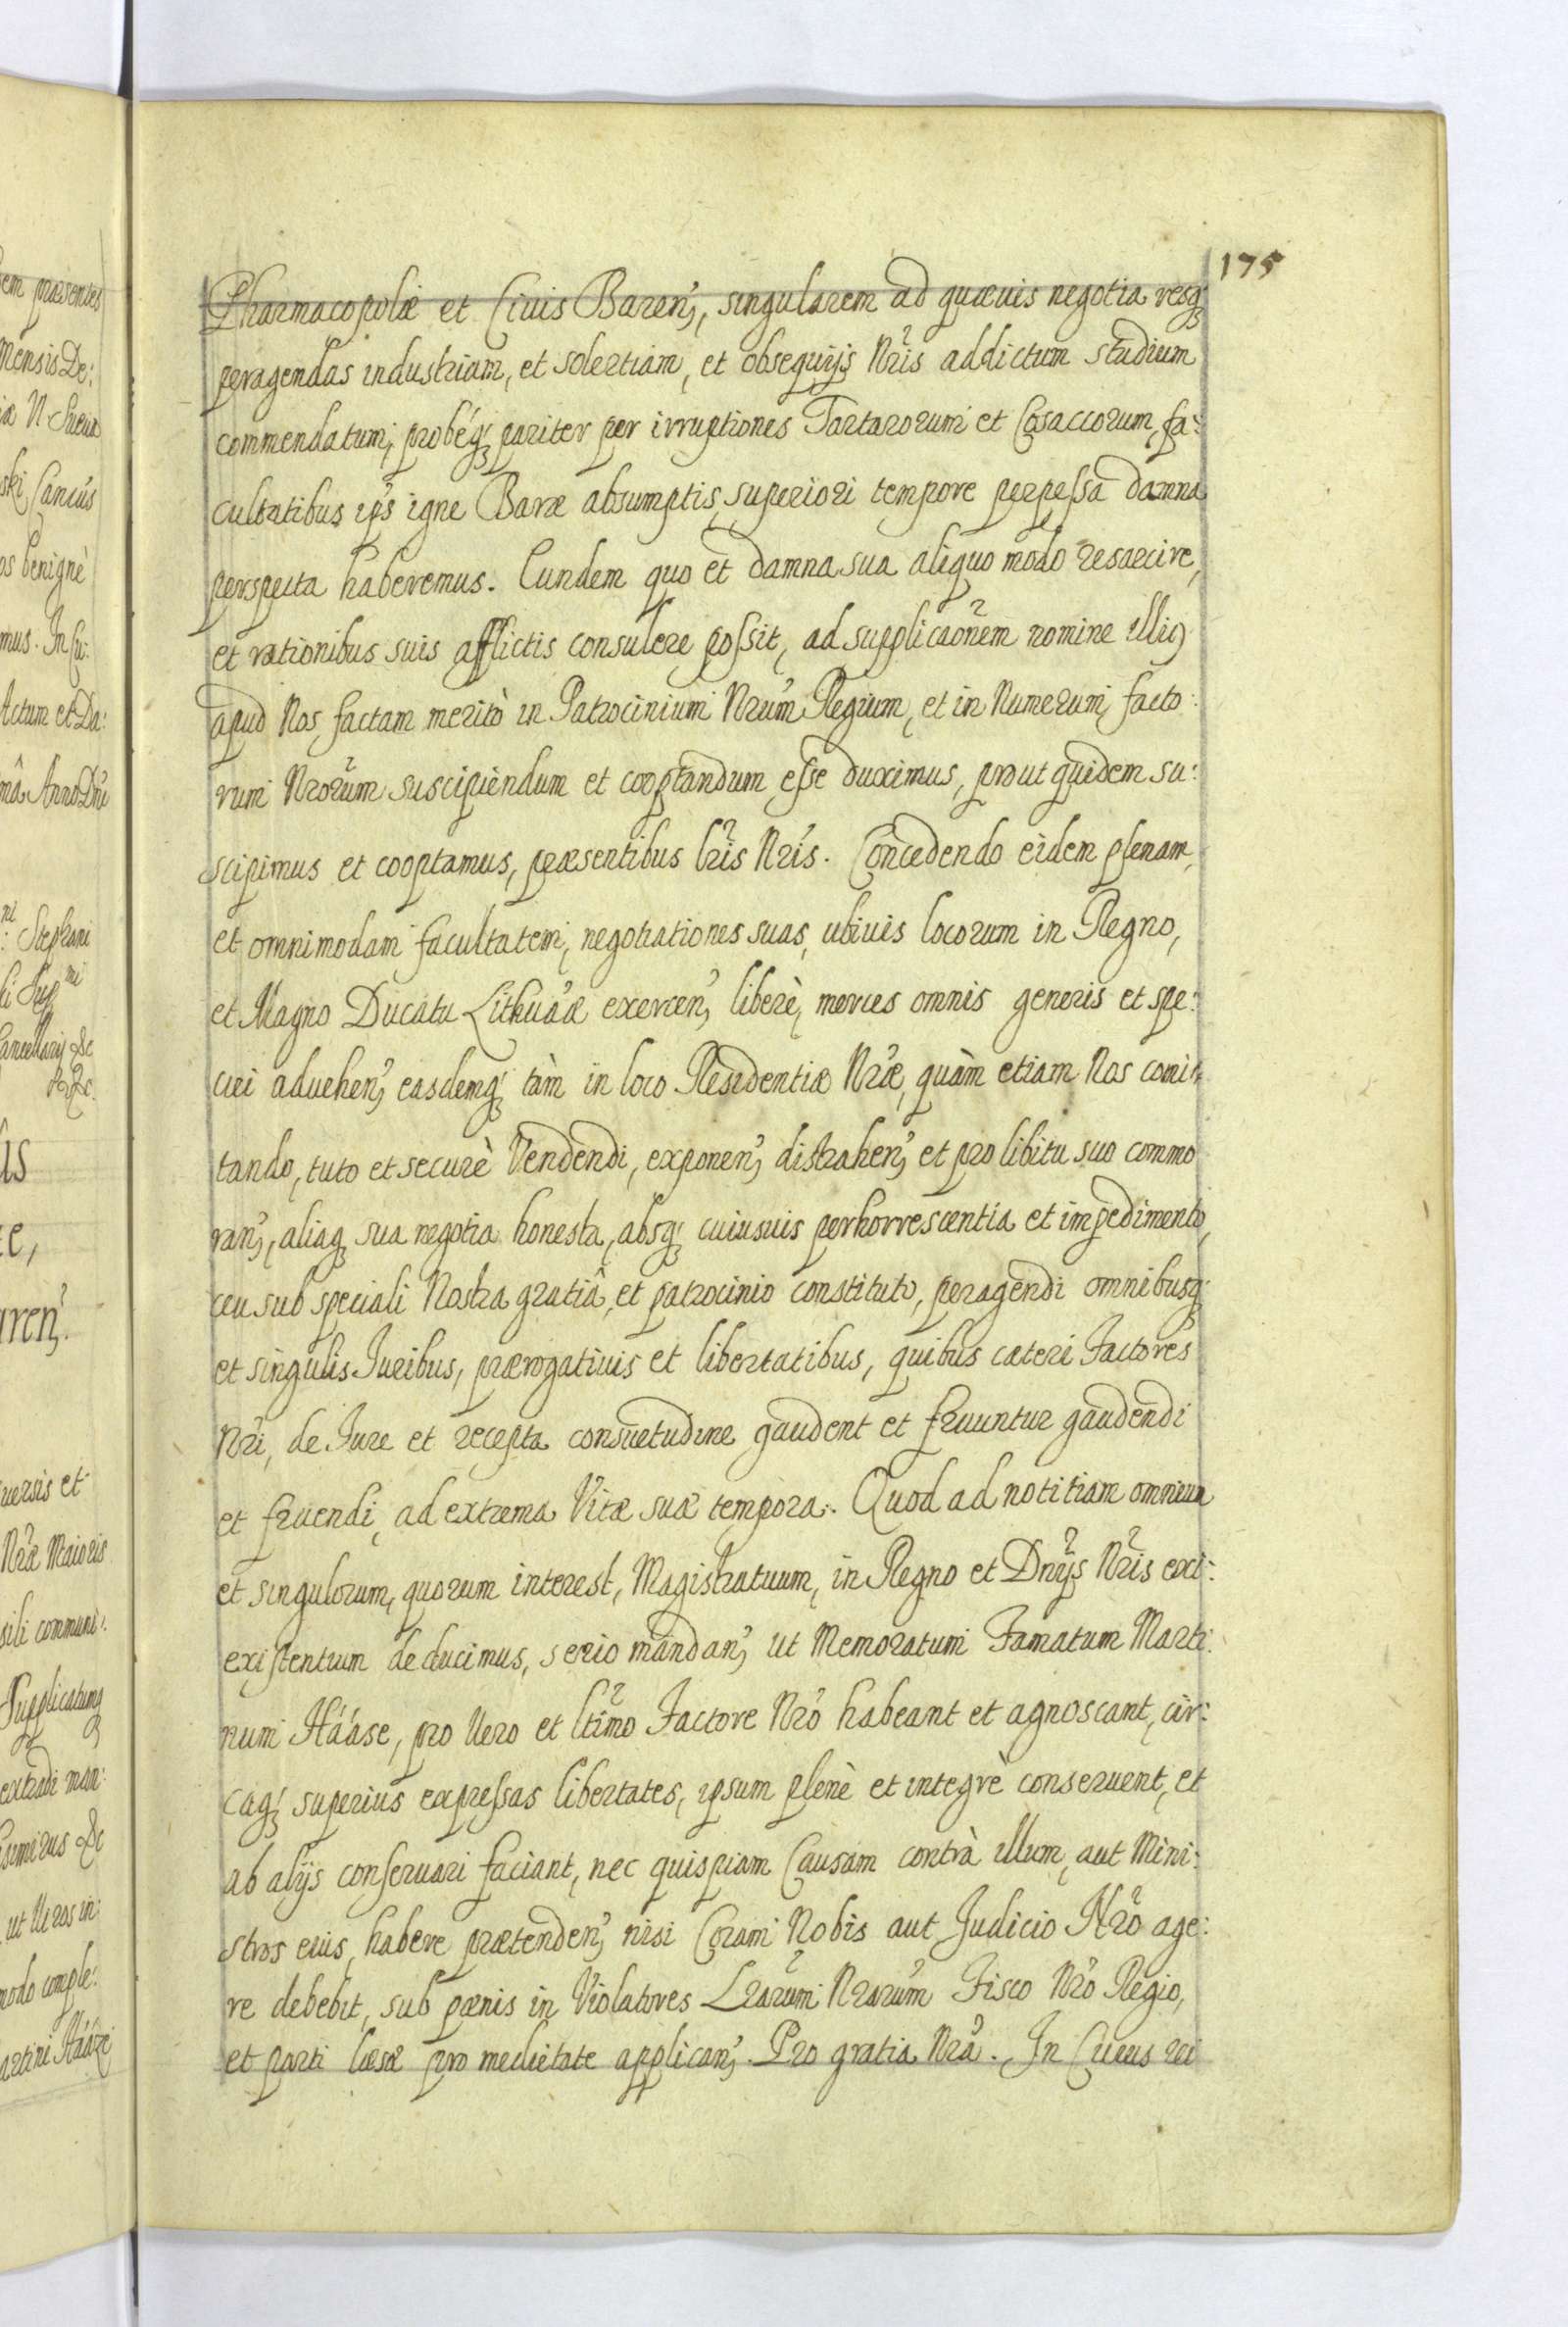 175
Pharmacopolæ et Civis Baren̄, singularem ad quævis negotia resq̨
peragendas industriam, et solertiam, et obsequijs Nr̃is addictum studium
commendatum, probéq̨ pariter per irruptiones Tartarorum et Cosaccorum, fa:
cultatibus ip̃s igne Baræ absumptis, superiori tempore perpessa damna
perspecta haberemus. Eundem quo et damna sua aliquo modo resarcire,
et rationibus suis afflictis consulere possit, ad supplicaõnem nomine illiꝰ
apud Nos factam meritò in Patrocinium Nr̃um Regium, et in Numerum facto:
rum Nror̃um suscipiendum et cooptandum esse duximus, prout quidem su:
scipimus et cooptamus, præsentibus lr̃is Nr̃is. Concedendo eidem plenam,
et omnimodam facultatem, negotiationes suas, ubivis locorum in Regno,
et Magno Ducatu Lithuãæ exercen̄, liberè, merces omnis generis et spe:
ciei advehen̄, easdemq̨ tàm in loco Residentiæ Nr̃æ, quàm etiam Nos comi:
tando, tuto et securè Vendendi, exponen̄, distrahen̄, et pro libitu suo commo
ran̄, aliaq̨ sua negotia honesta, absq̨ cuiusvis perhorrescentia et impedimento,
ceu sub speciali Nostra gratiâ, et patrocinio constituto, peragendi omnibusq̨
et singulis Juribus, prærogativis et libertatibus, quibus cæteri Factores
Nr̃i, de Jure et recepta consuetudine gaudent et fruuntur gaudendi
et fruendi, ad extrema Vitæ suæ tempora. Quod ad notitiam omnium
et singulorum, quorum interest, Magistratuum, in Regno et Dn̄ijs Nr̃is exi:
existentium deducimus, serio mandan̄, ut Memoratum Famatum Marti
num Háásе, pro Vero et ltĩmo Factore Nr̃o habeant et agnoscant, cir:
caq̨ superius expressas libertates, ipsum plenè et integrè conservent, et
ab alijs conservari faciant, nec quispiam Causam contrà illum, aut Mini:
stros eius, habere prætenden̄, nisi Coram Nobis aut Judicio Nr̃o age:
re debebit, sub pœnis in Violatores Lrar̃um Nrar̃um Fisco Nr̃o Regio,
et parti læsæ pro medietate applican̄. Pro gratia Nr̃a. In Cuius rei